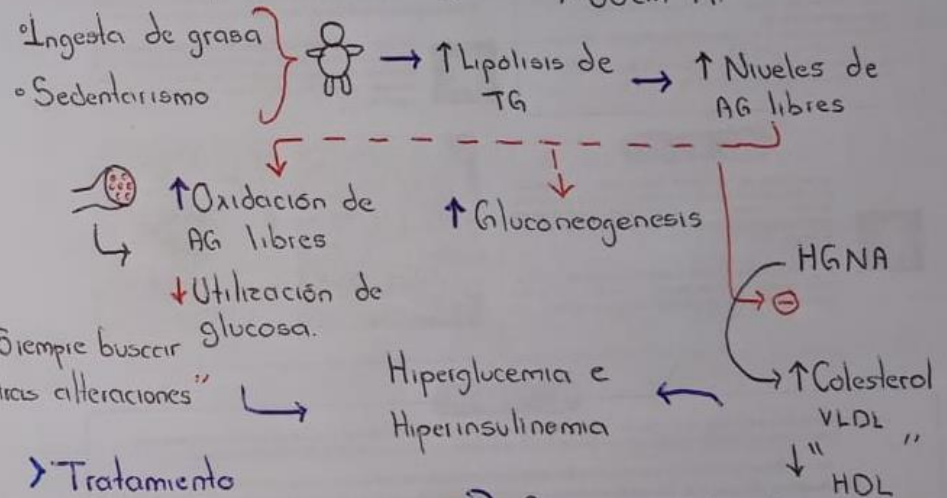 ° Ingesta de grasa
° Sedentarismo
→ ↑ Lipólisis de
TG
→ ↑ Niveles de
AG libres
↑ Oxidación de
AG libres
↓ Utilización de
glucosa.
↑ Gluconeogenesis
HGNA
⊖
↑ Colesterol
VLDL
↓ " "
HDL
Siempre buscar
alteraciones"
Hiperglucemia e
Hiperinsulinemia
> Tratamiento